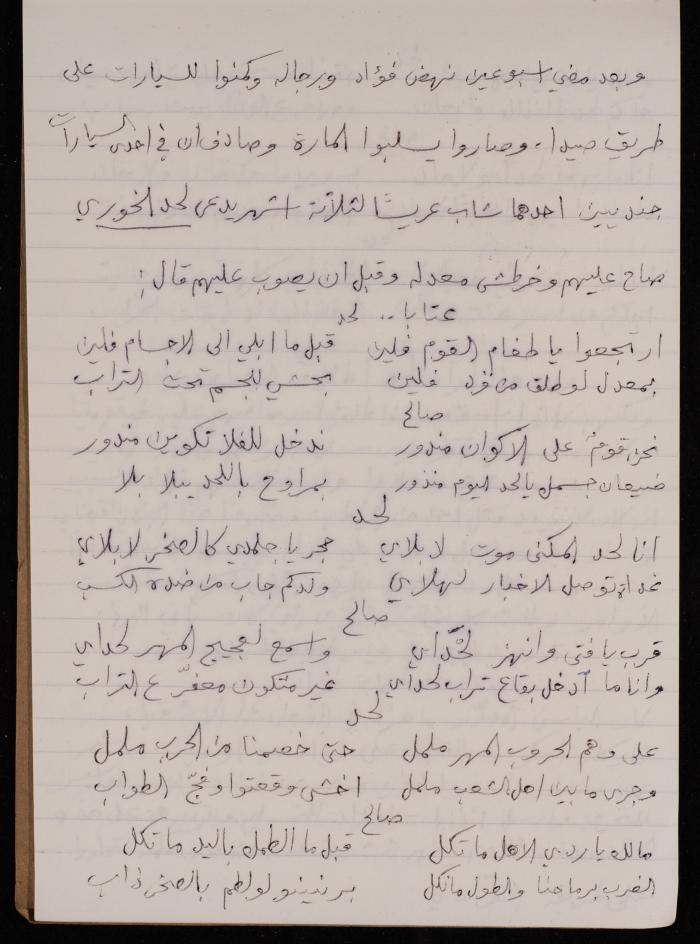 وبعد مضي اسبوعين نهض فؤاد ورجاله وكمنوا للسيارات على
طريق صيدا، وصاروا يسلبوا المارة وصادف ان في احدى السيارات
جنديين احدهما شاب عريسًا لثلاثة اشهر يدعى لحد الخوري
صاح عليهم وخرطش معدله وقبل ان يصوب عليهم قال:
عتابا.. لحد
ارتجعوا يا طغام القوم فلين قبل ما ابلي الى الاجسام فلين
بمعدل لو طلق من فرد فلين بحشي للجسم تحت التراب
صالح
نحن قومٌ على الاكوان مندور ندخل للفلا تكوين مندور
ضيعان جسمك يا لحد اليوم منذور بمراوح باللحد يبلا بلا
لحد
انا لحد المكنى موت لابلاي حجر يا جلمدي كالصخر لابلاي
غداة توصل الاخبار لهلاي ولدكم جاب من ضدة الكسب
صالح
قرب يا فتى وانهز لحّداي واسمع لعجيج المهر لحداي
وانا ما ادخل بقاع تراب لحداي غير متكون معفّر ع التراب
لحد
على وهم الحروب المهر ململ حتى خصيمنا من الحرب ململ
وجرى ما بين اهل الشعب ململ اخشى وقعتوا وفجّ الطواب
صالح
مالك يا ردي الاهل ما تكل قبل ما الطمك باليد ما تكل
الضرب برماحنا والطول ما تكل برندينو لو لطم بالصخر ذاب